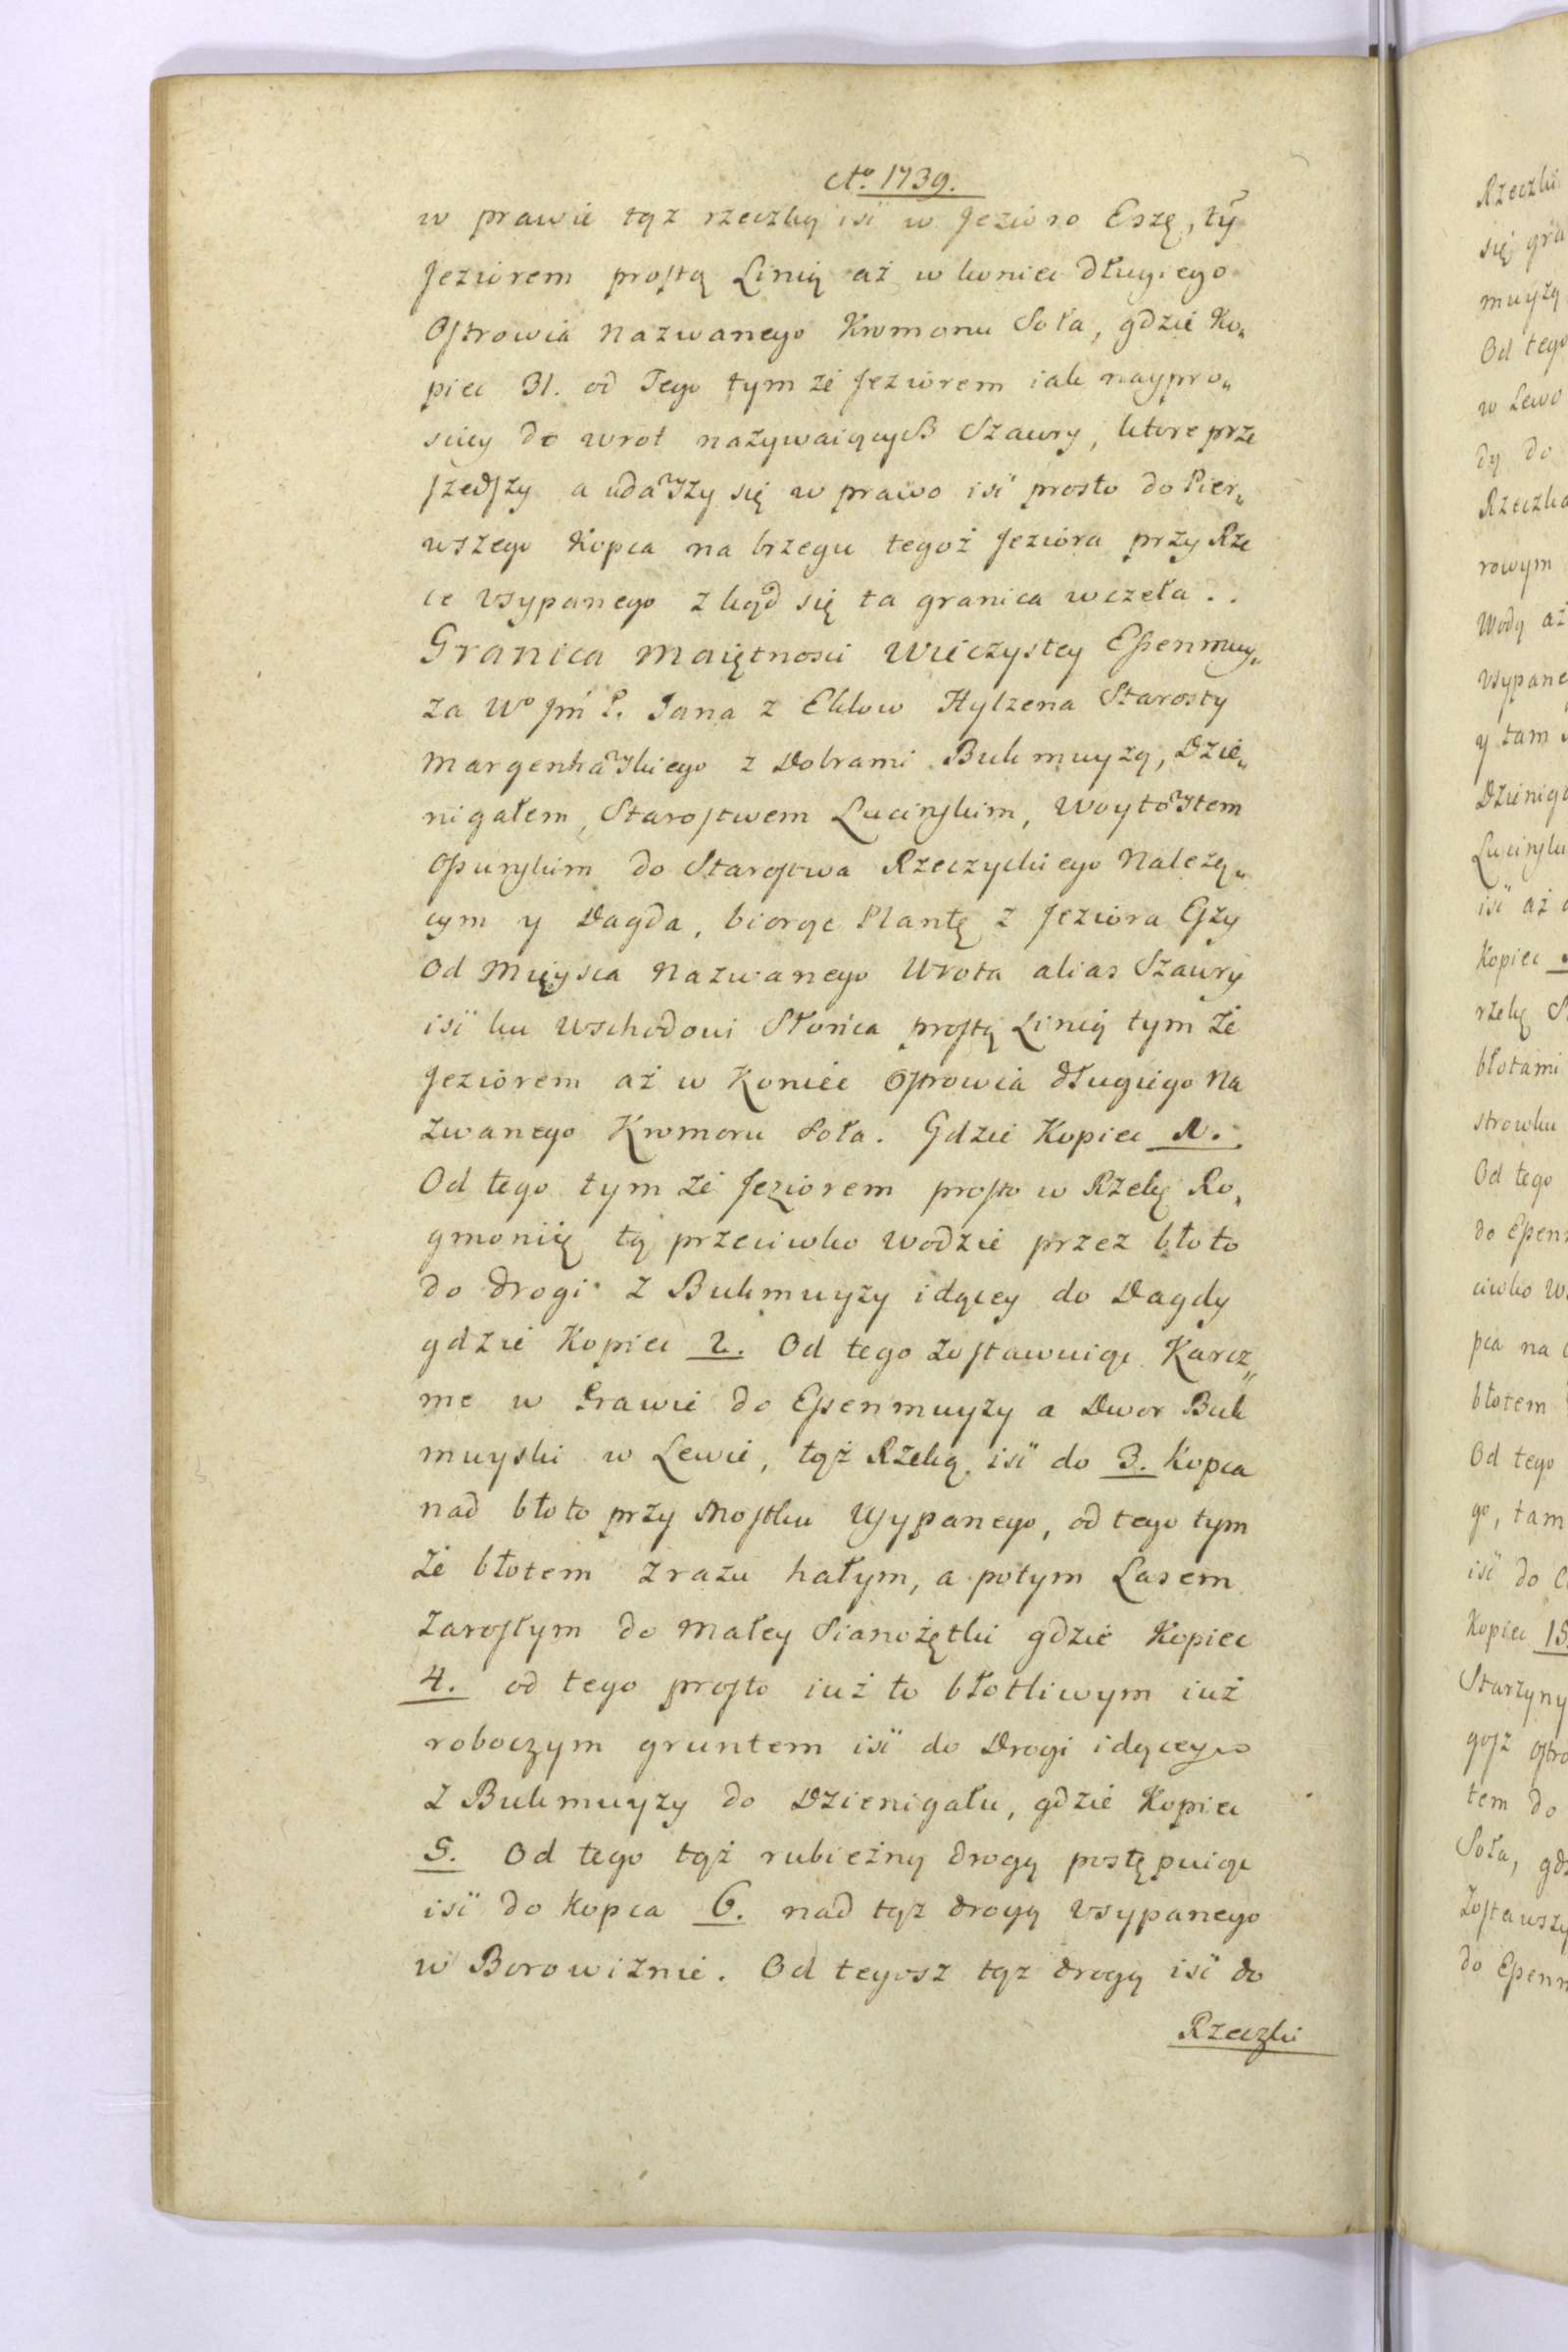 Ao. 1739.
w prawie tąż rzeczką iść w Jezioro Eszę, tÿ
Jeziorem prostą Linią aż w koniec długiego
Ostrowia Nazwanego Kromonu Soła, gdzie Ko„
piec 31. od Tego tym że Jeziorem iak naypro„
sciey do wrot nazywaiących Szawry, ktore prze
szedszy a udawszy się w prawo iść prosto do Pier„
wszego Kopca na brzegu tegoż Jeziora przy Rze
ce vsypanego zkąd się ta granica wczeła..
Granica Maiętnosci Wieczystey Essenmuy„
za Wo Jm̃ P. Jana z Eklow Hylzena Starosty
Margenhawskiego z Dobrami Bukmuyżą, Dzie„
nigałem, Starostwem Lucinskim, Woytowstem
Opunskim do Starostwa Rzeczyckiego Należą„
cym y Dagda, biorąc Plantę z Jeziora Eszy
Od Mieysca Nazwanego Wrota alias Szawry
iść ku Wschodowi Słońca prostą Linią tym Że
Jeziorem aż w Koniec Ostrowia długiego Na
zwanego Kromonu Soła. Gdzie Kopiec 1.
Od tego tym że Jeziorem prosto w Rzekę Ro„
gmonię tą przeciwko wodzie przez błoto
do drogi z Bukmuyży idącey do Dagdy
gdzie Kopiec 2. Od tego zostawuiąc Karcz„
me w Prawie do Essenmuyży a Dwor Buk
muyski w Lewie, tąż Rzeką iść do 3. Kopca
nad błoto przy Mostku Usypanego, od tego tym
że błotem zrazu hałym, a potym Lasem
zarosłym do Małey Sianożętki gdzie Kopiec
4. od tego prosto iuż to błotliwym iuż
roboczym gruntem iść do Drogi idącey
z Bukmuyzy do Dzienigału, gdzie Kopiec
5. Od tego tąż rubieżną drogą postępuiąc
iść do Kopca 6. nad tąż drogą vsypanego
w Borowiznie. Od tegosz tąż drogą iść do
Rzeczki
Rzeczki
się gra
muyżą
Od tego
w Lewo
dy do
Rzeczka
rowym
Wodą aż
vsypane
y tam
Dzieniga
Lucinsku
iść aż
Kopiec
rzekę
błotami
strowku
Od tego
do Essen
ciwko
pca na
błotem
Od tego
go, tam
iść do
Kopiec 15
Starzyny
gosz ostro
tem do
Soła, gdz
Zostawszy
do Essenm